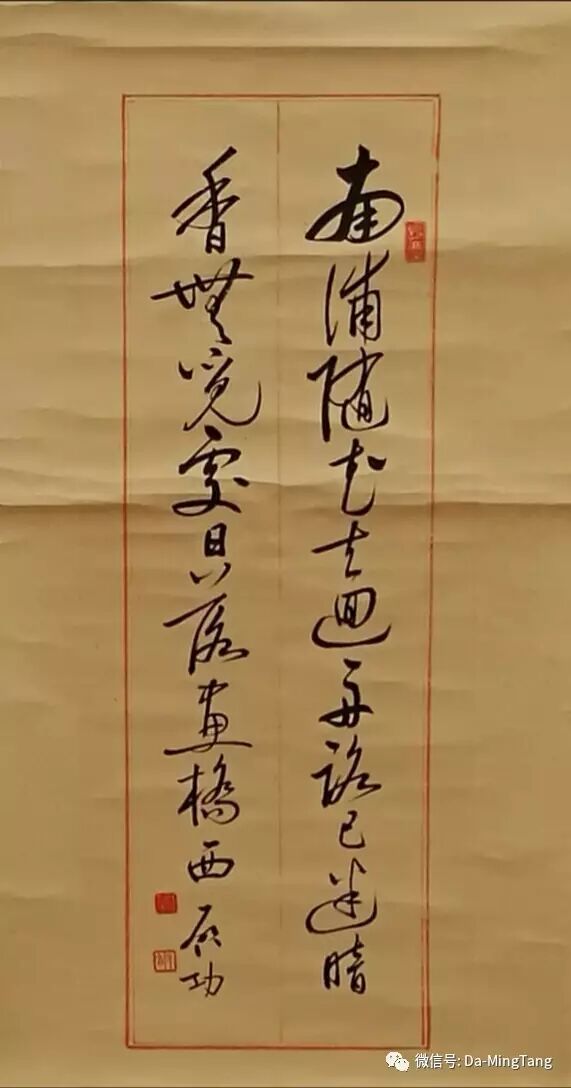 南浦隨花去迴舟路已迷暗
香無覓處日落畫橋西 启功
微信号: Da-MingTang